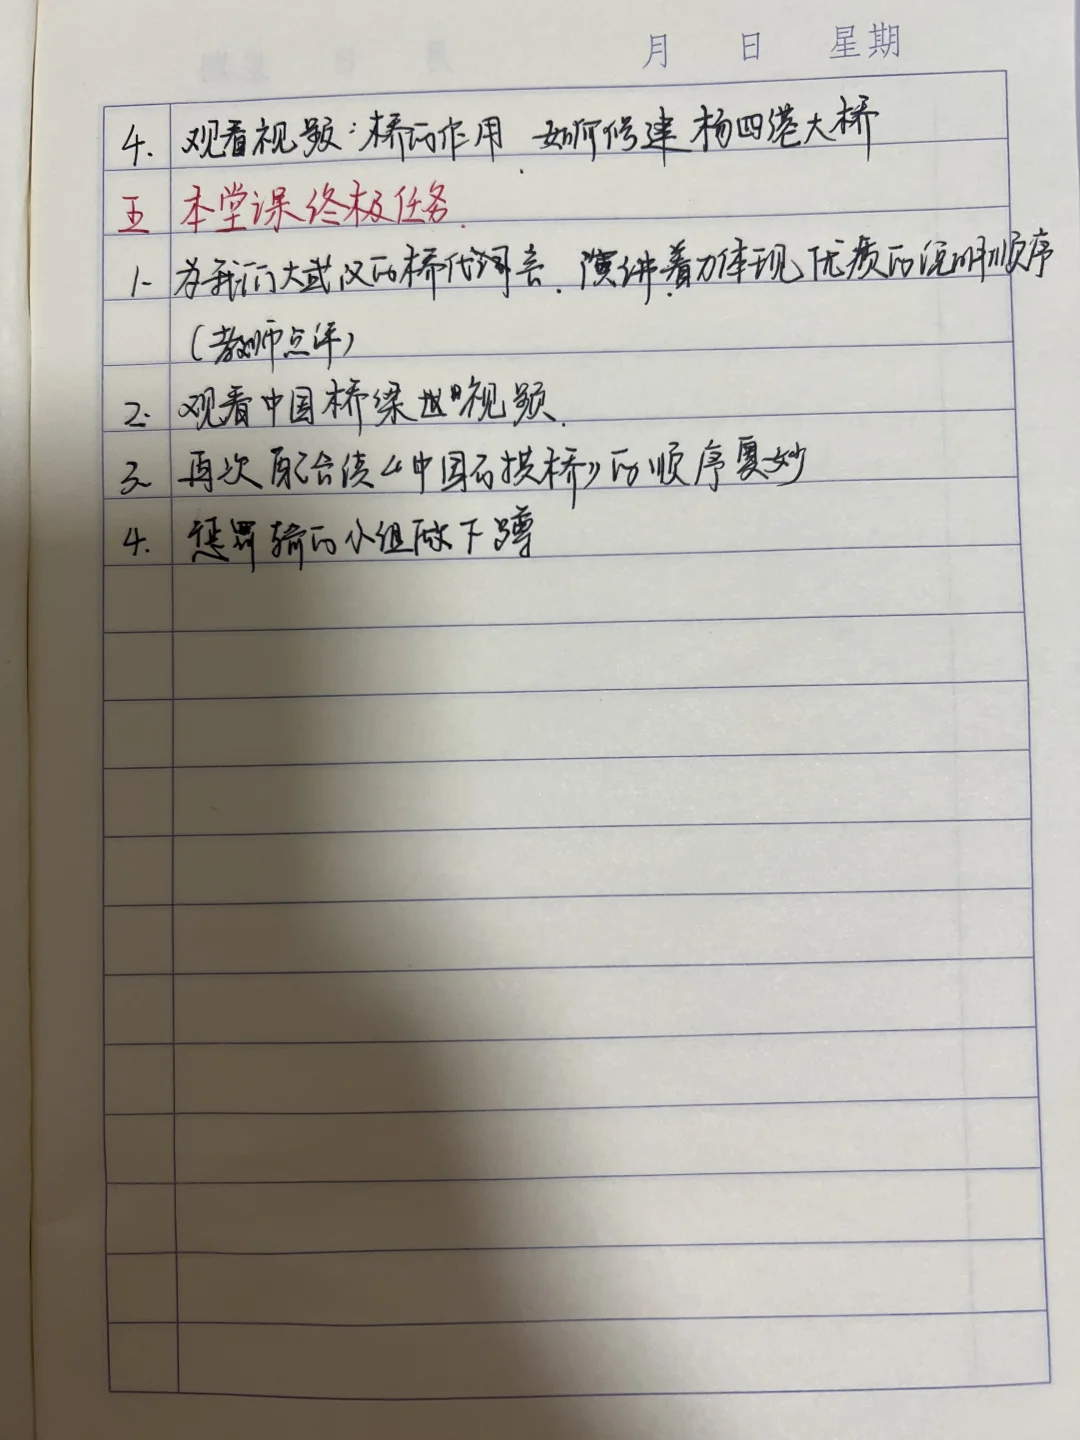 月 日 星期
4. 观看视频：桥的作用 如何修建杨四港大桥
五 本堂课终极任务.
1. 为我们大武汉的桥代词言. 演讲着力体现优质的说明顺序
(教师点评)
2. 观看中国桥梁 视频.
3. 再次配合读《中国石拱桥》的顺序 妙
4. 惩罚输的小组做下蹲